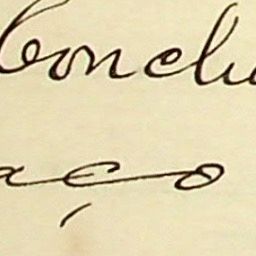 Conclu
aço